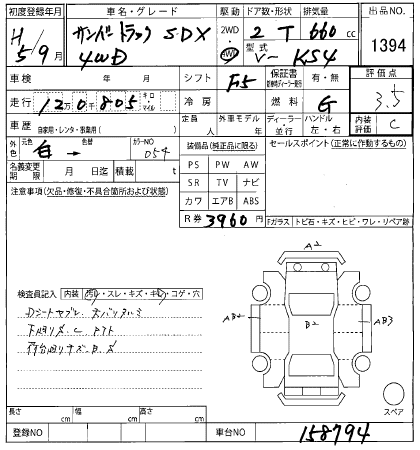 初度登録年月 車名・グレード 駆動 ドア数・形状 排気量 出品NO
H 5/9月 サンバートラック SDX 4WD 2WD 4WD 2 T 660 cc 1394
型式 V- KS4
車検 年 月 シフト F5 保証書 有・無 評価点 3.5
走行 12万0千805 キロ・マイル 冷房 燃料 G
車歴 自家用・レンタ・事業用( ) 定員 人 外車モデル 年 ディーラー・並行 ハンドル 左・右 内装評価 C
外色 元色 白→ 色替 カラーNO 054 装備品(純正品に限る) セールスポイント(正常に作動するもの)
名義変更期限 月 日迄 積載 t PS PW AW
SR TV ナビ
注意事項(欠品・修復・不具合箇所および状態) カワ エアB ABS
R券 3960円 Fガラス トビ石・キズ・ヒビ・ワレ・リペア跡
A2
検査員記入 内装 汚レ・スレ・キズ・キレ・コゲ・穴
AB2 B2 AB3
スペア
長さ cm 幅 cm 高さ cm
登録NO 車台NO 158794